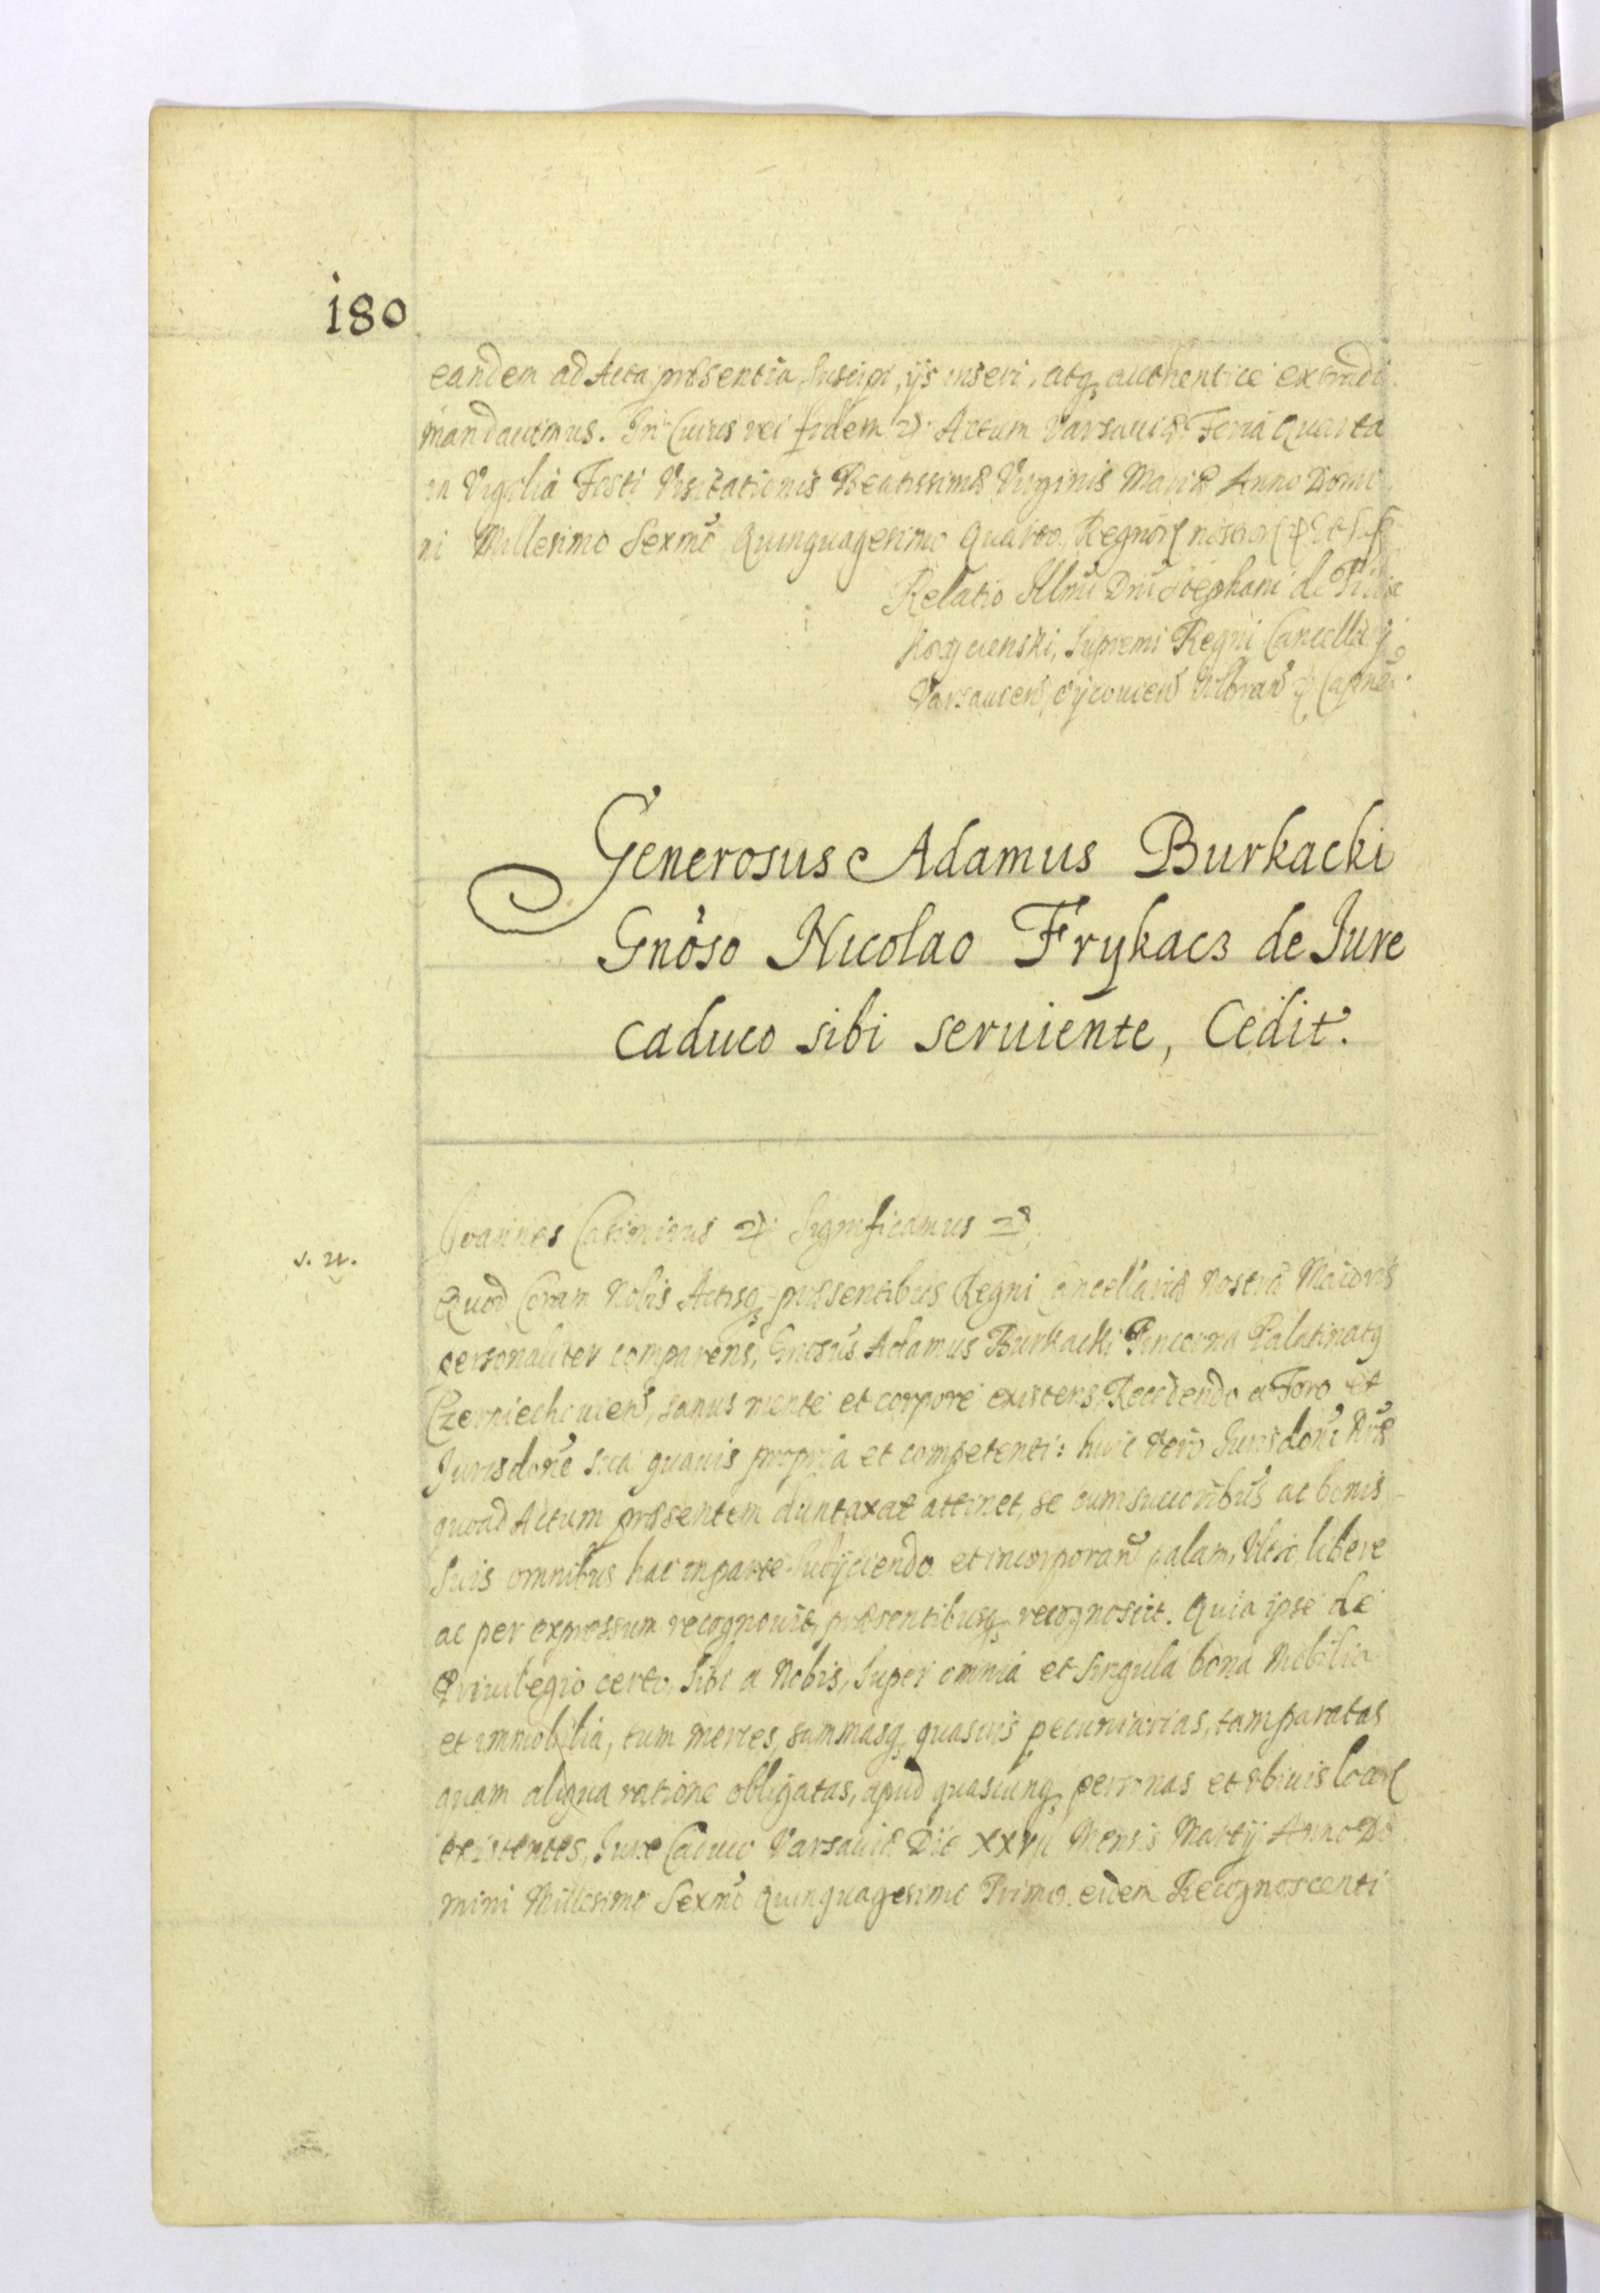 180
eandem ad Acta præsentia suscipi, ijs inseri, atq; authentice extradi
mandauimus. In Cuius rei fidem Actum Varsauiæ Feria Quarta
in Vigilia Festi Visitationis Beatissimæ Virginis Mariæ Anno Domi
ni Millesimo Sexmo Quinquagesimo Quarto Regnor nostror
Relatio Illmi Dni Stephani de Pilca
Korycienski, Supremi Regni Cancellarij
Varsauien, Ojcouien
Generosus Adamus Burkacki
Gnoso Nicolao Frykacz de Iure
caduco sibi seruiente, Cedit.
Joannes Casimirus Significamus
s. n.
Quod Coram Nobis Actisq; præsentibus Regni Cancellariæ Nostræ Maioris
personaliter comparens, Gnosus Adamus Burkacki Pincerna Palatinatq
Czerniechouien, sanus mente et corpore existens, Recedendo a Foro et
Jurisdone sua quauis propria et competenti: huic vero Jurisdoni Nræ
quoad Actum præsentem duntaxat attinet, se cum succoribus ac bonis
suis omnibus hac in parte subijciendo et incorporan palam, libere
ac per expressum recognouit, præsentibusq; recognoscit. Quia ipse de
Priuilegio certo, sibi a Nobis, super omnia et singula bona Mobilia
et immobilia, tum merces, summasq; quasuis pecuniarias, tam paratas
quam aliqua ratione obligatas, apud quascunq; personas et vbiuis locor
existentes, Jure Caduco Varsauiæ Die XXVII Mensis Martij Anno Do
mini Millesimo Sexmo Quinquagesimo Primo eidem Recognoscenti